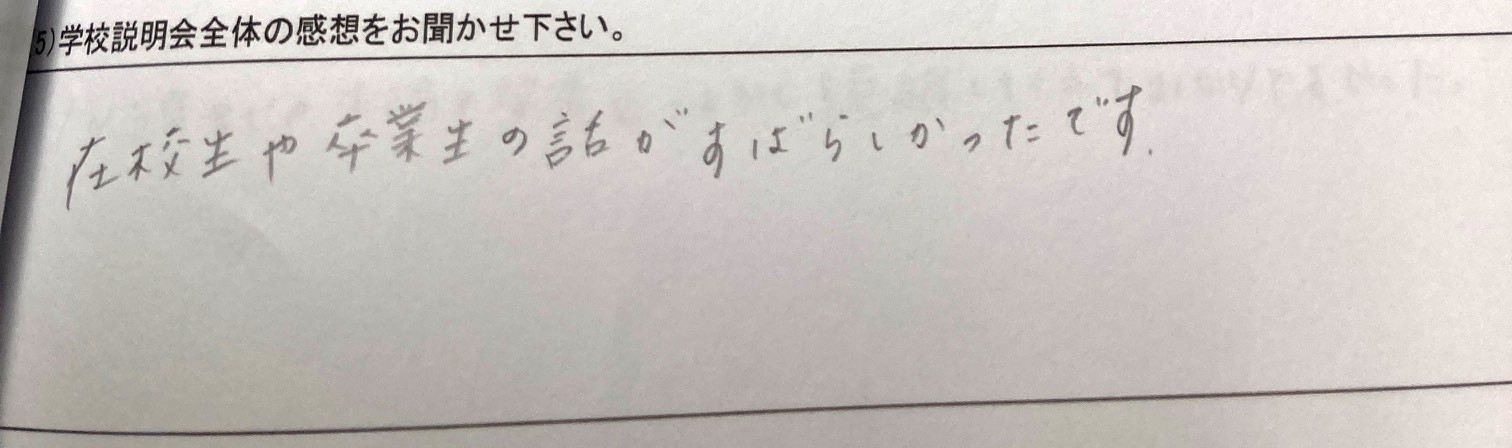 5)学校説明会全体の感想をお聞かせ下さい。
在校生や卒業生の話がすばらしかったです.